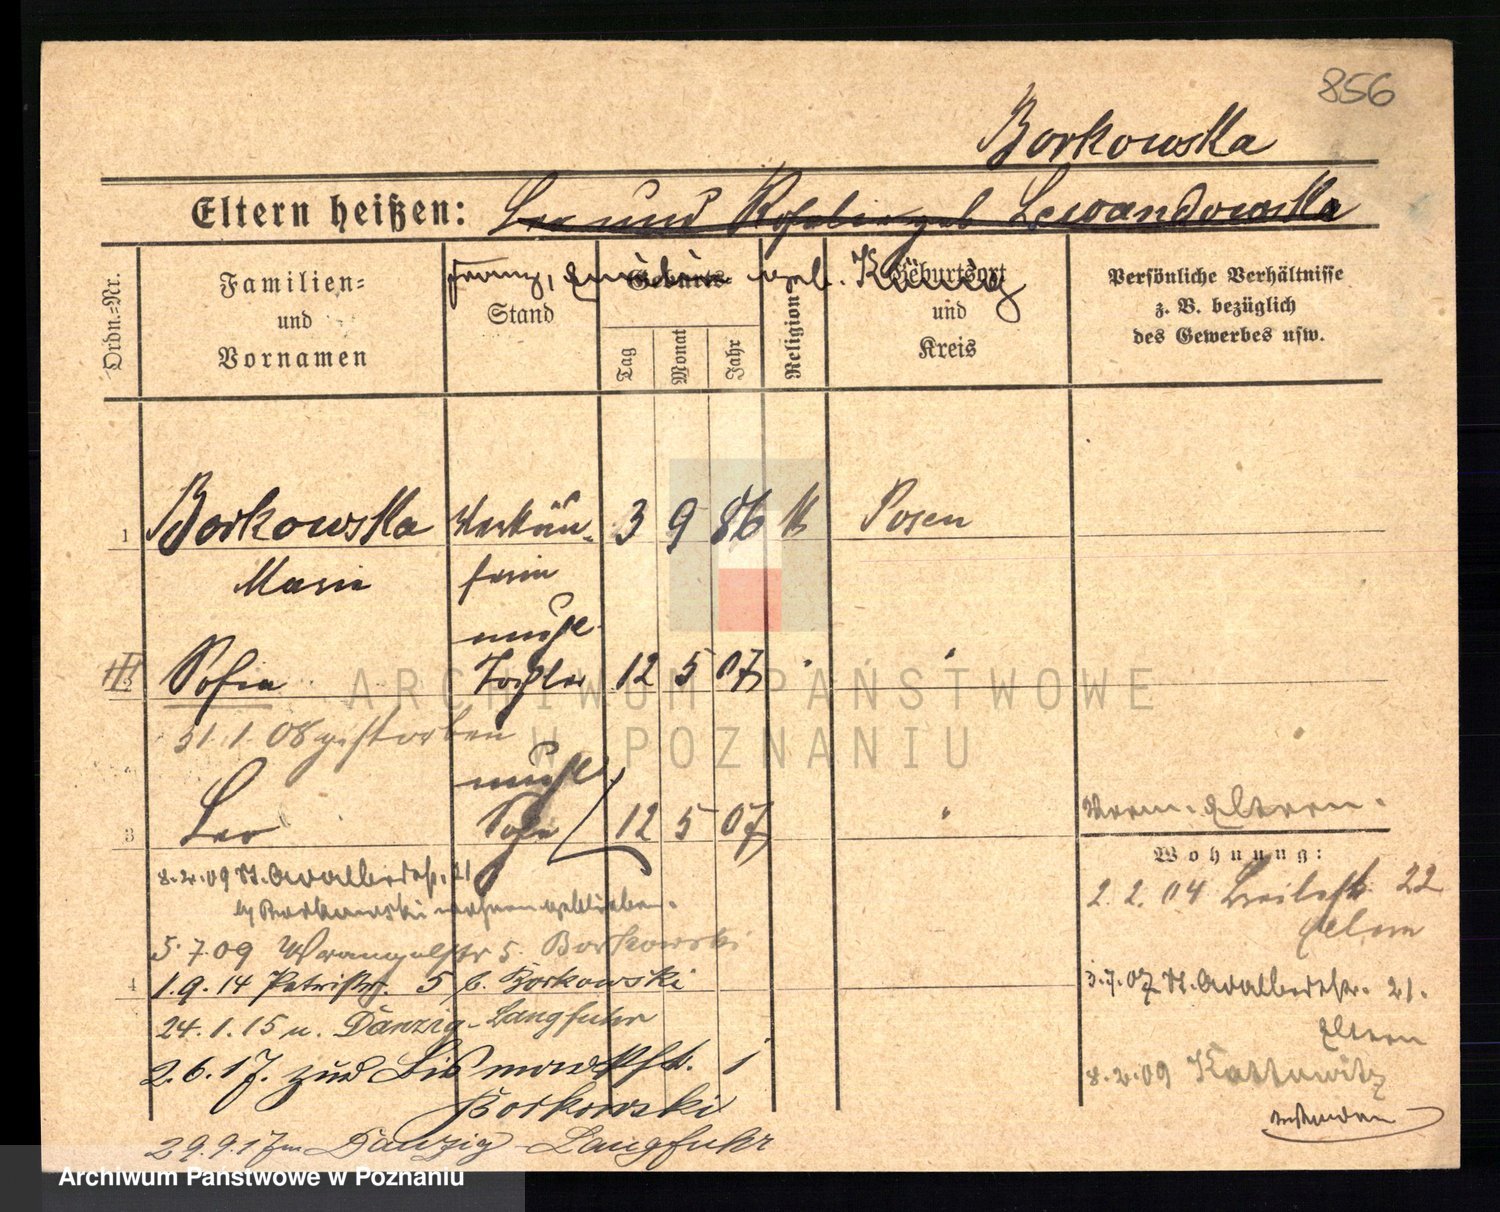 856
Borkowska
Eltern heißen: Leo und Rosalie geb Lewandowska
Franz, geb. König
Ordn.-Nr.
Familien-
und
Vornamen
Stand
Geburts-
Tag
Monat
Jahr
Religion
Geburtsort
und
Kreis
Persönliche Verhältnisse
z. B. bezüglich
des Gewerbes usw.
1 Borkowska Verkäu- 3 9 86 k Posen
Marie ferin
unehe
Sofia Tochter 12 5 07 "
31.1.08 gestorben
unehe
3 Leo Sohn 12 5 07 "
Eltern.
Wohnung:
8.2.09 St. Adalbertstr. 21
b/ Borkowski wohnen geblieben.
5.7.09 Wrangelstr 5. Borkowski
4 1.9.14 Patristr. 5 b. Borkowski
24.1.15 n. Danzig-Langfuhr
2.6.17. zud Bismarckstr. 1
Borkowski
29.9.17 n Danzig Langfuhr
2.2.04 Breitestr. 22
Eltern
3.7.07 St. Adalbertstr. 21.
Eltern
8.2.09 Kattowitz
ARCHIWUM PAŃSTWOWE
W POZNANIU
Archiwum Państwowe w Poznaniu